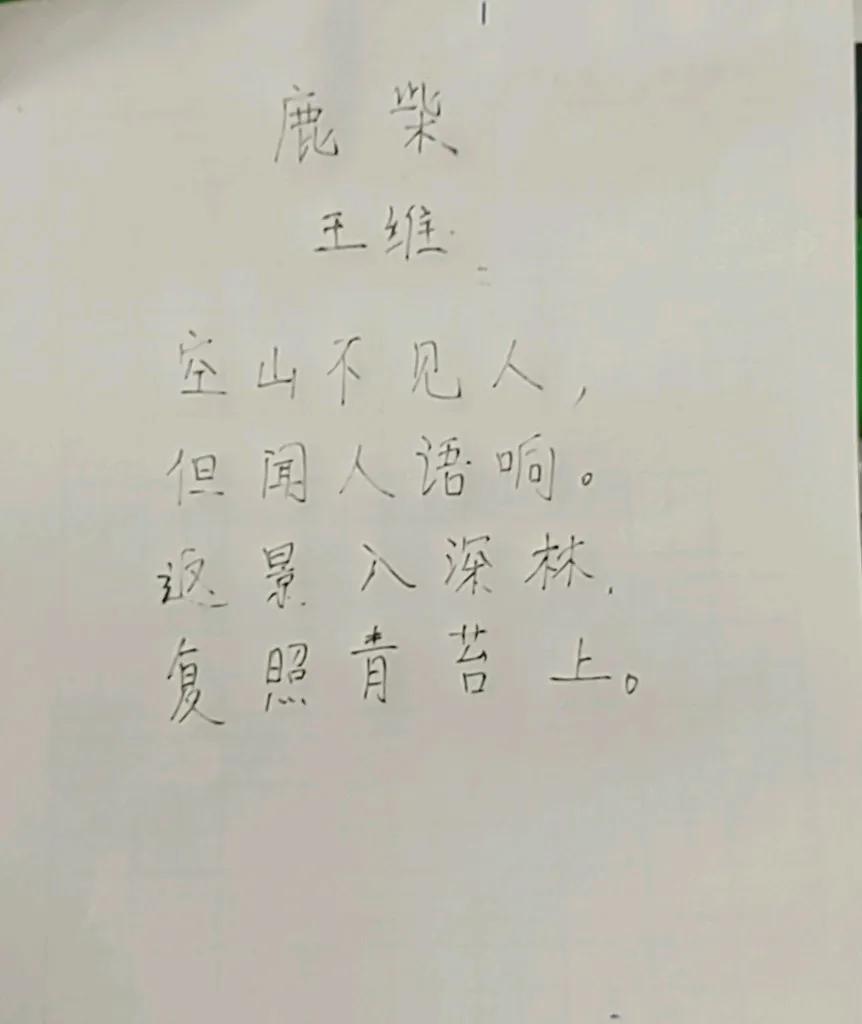 鹿柴
王维
空山不见人,
但闻人语响。
返景入深林,
复照青苔上。